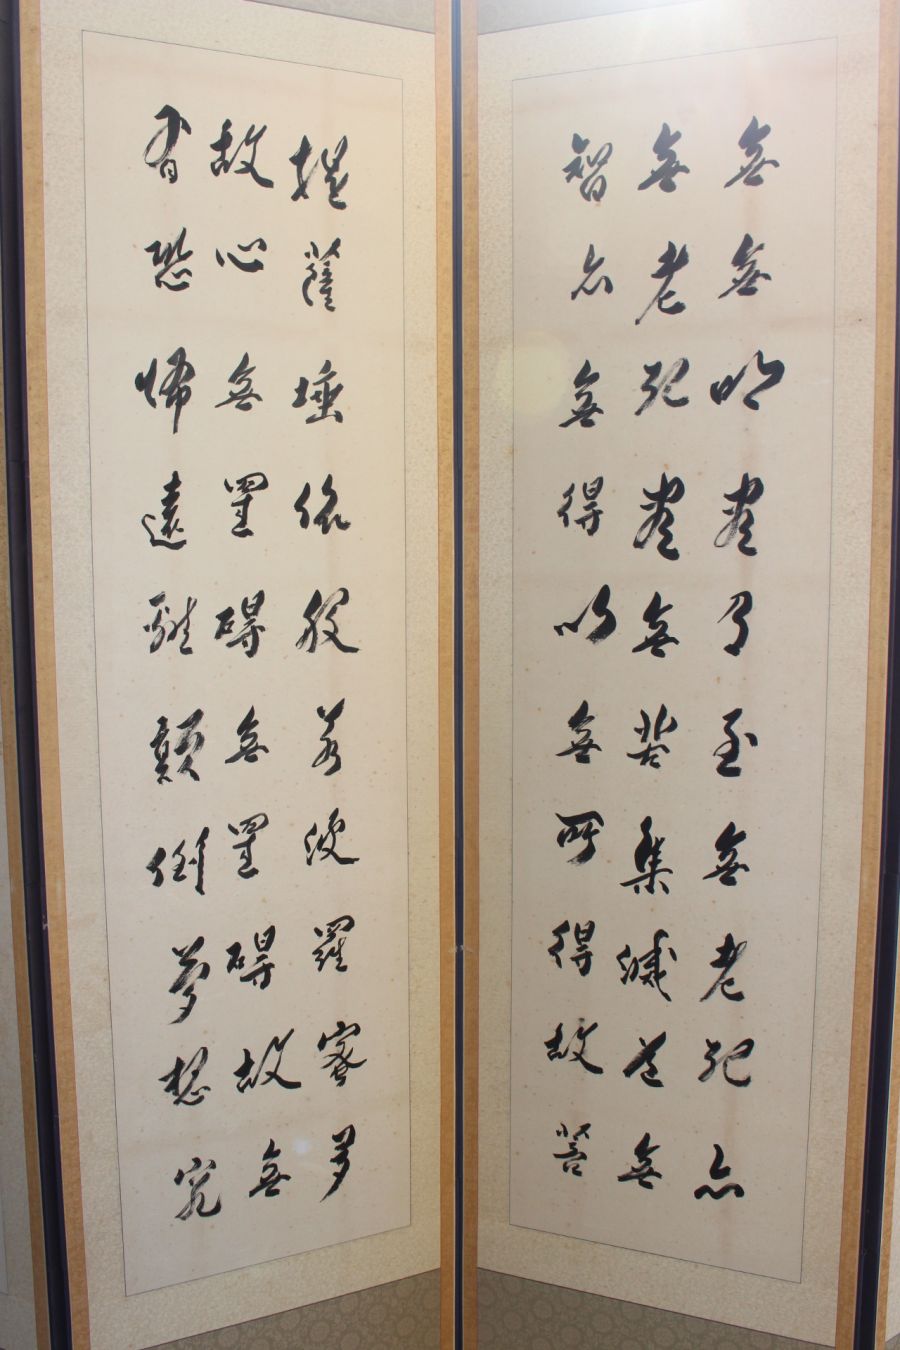 無無明盡乃至無老死亦
無老死盡無苦集滅道無
智亦無得以無所得故菩
提薩埵依般若波羅蜜多
故心無罣碍無罣碍故無
有恐怖遠離顛倒夢想究